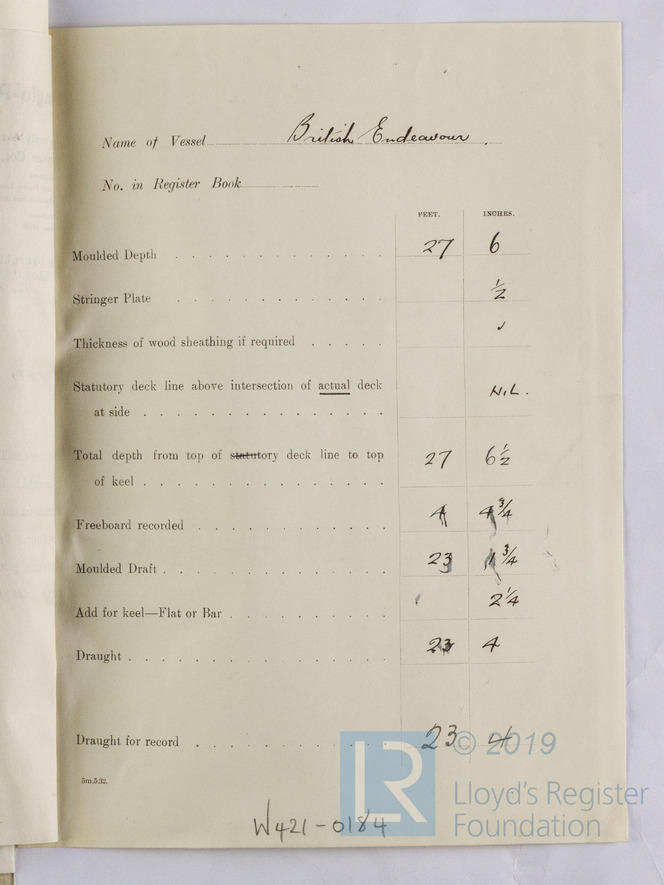 Name of Vessel British Endeavour.
No. in Register Book
FEET. INCHES.
Moulded Depth . . . . . . . . . . . . 27 6
Stringer Plate . . . . . . . . . . . . ½
Thickness of wood sheathing if required . . . . . ✓
Statutory deck line above intersection of actual deck
at side . . . . . . . . . . . . . . NIL.
Total depth from top of statutory deck line to top
of keel . . . . . . . . . . . . . . 27 6½
Freeboard recorded . . . . . . . . . . . 4 4¾
Moulded Draft . . . . . . . . . . . . . 23 1¾
Add for keel—Flat or Bar . . . . . . . . . 2¼
Draught . . . . . . . . . . . . . . . 23 4
Draught for record . . . . . . . . . . . 23 4
5m,5,32.
W421-0184
LR © 2019
Lloyd's Register
Foundation